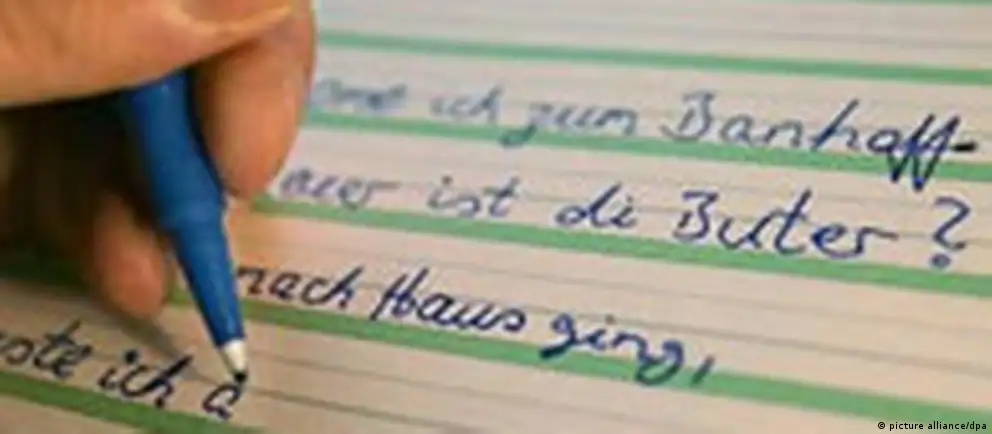 ich zum Banhoff-
ist di Buter?
nach Haus ging,
ste ich a
© picture alliance/dpa